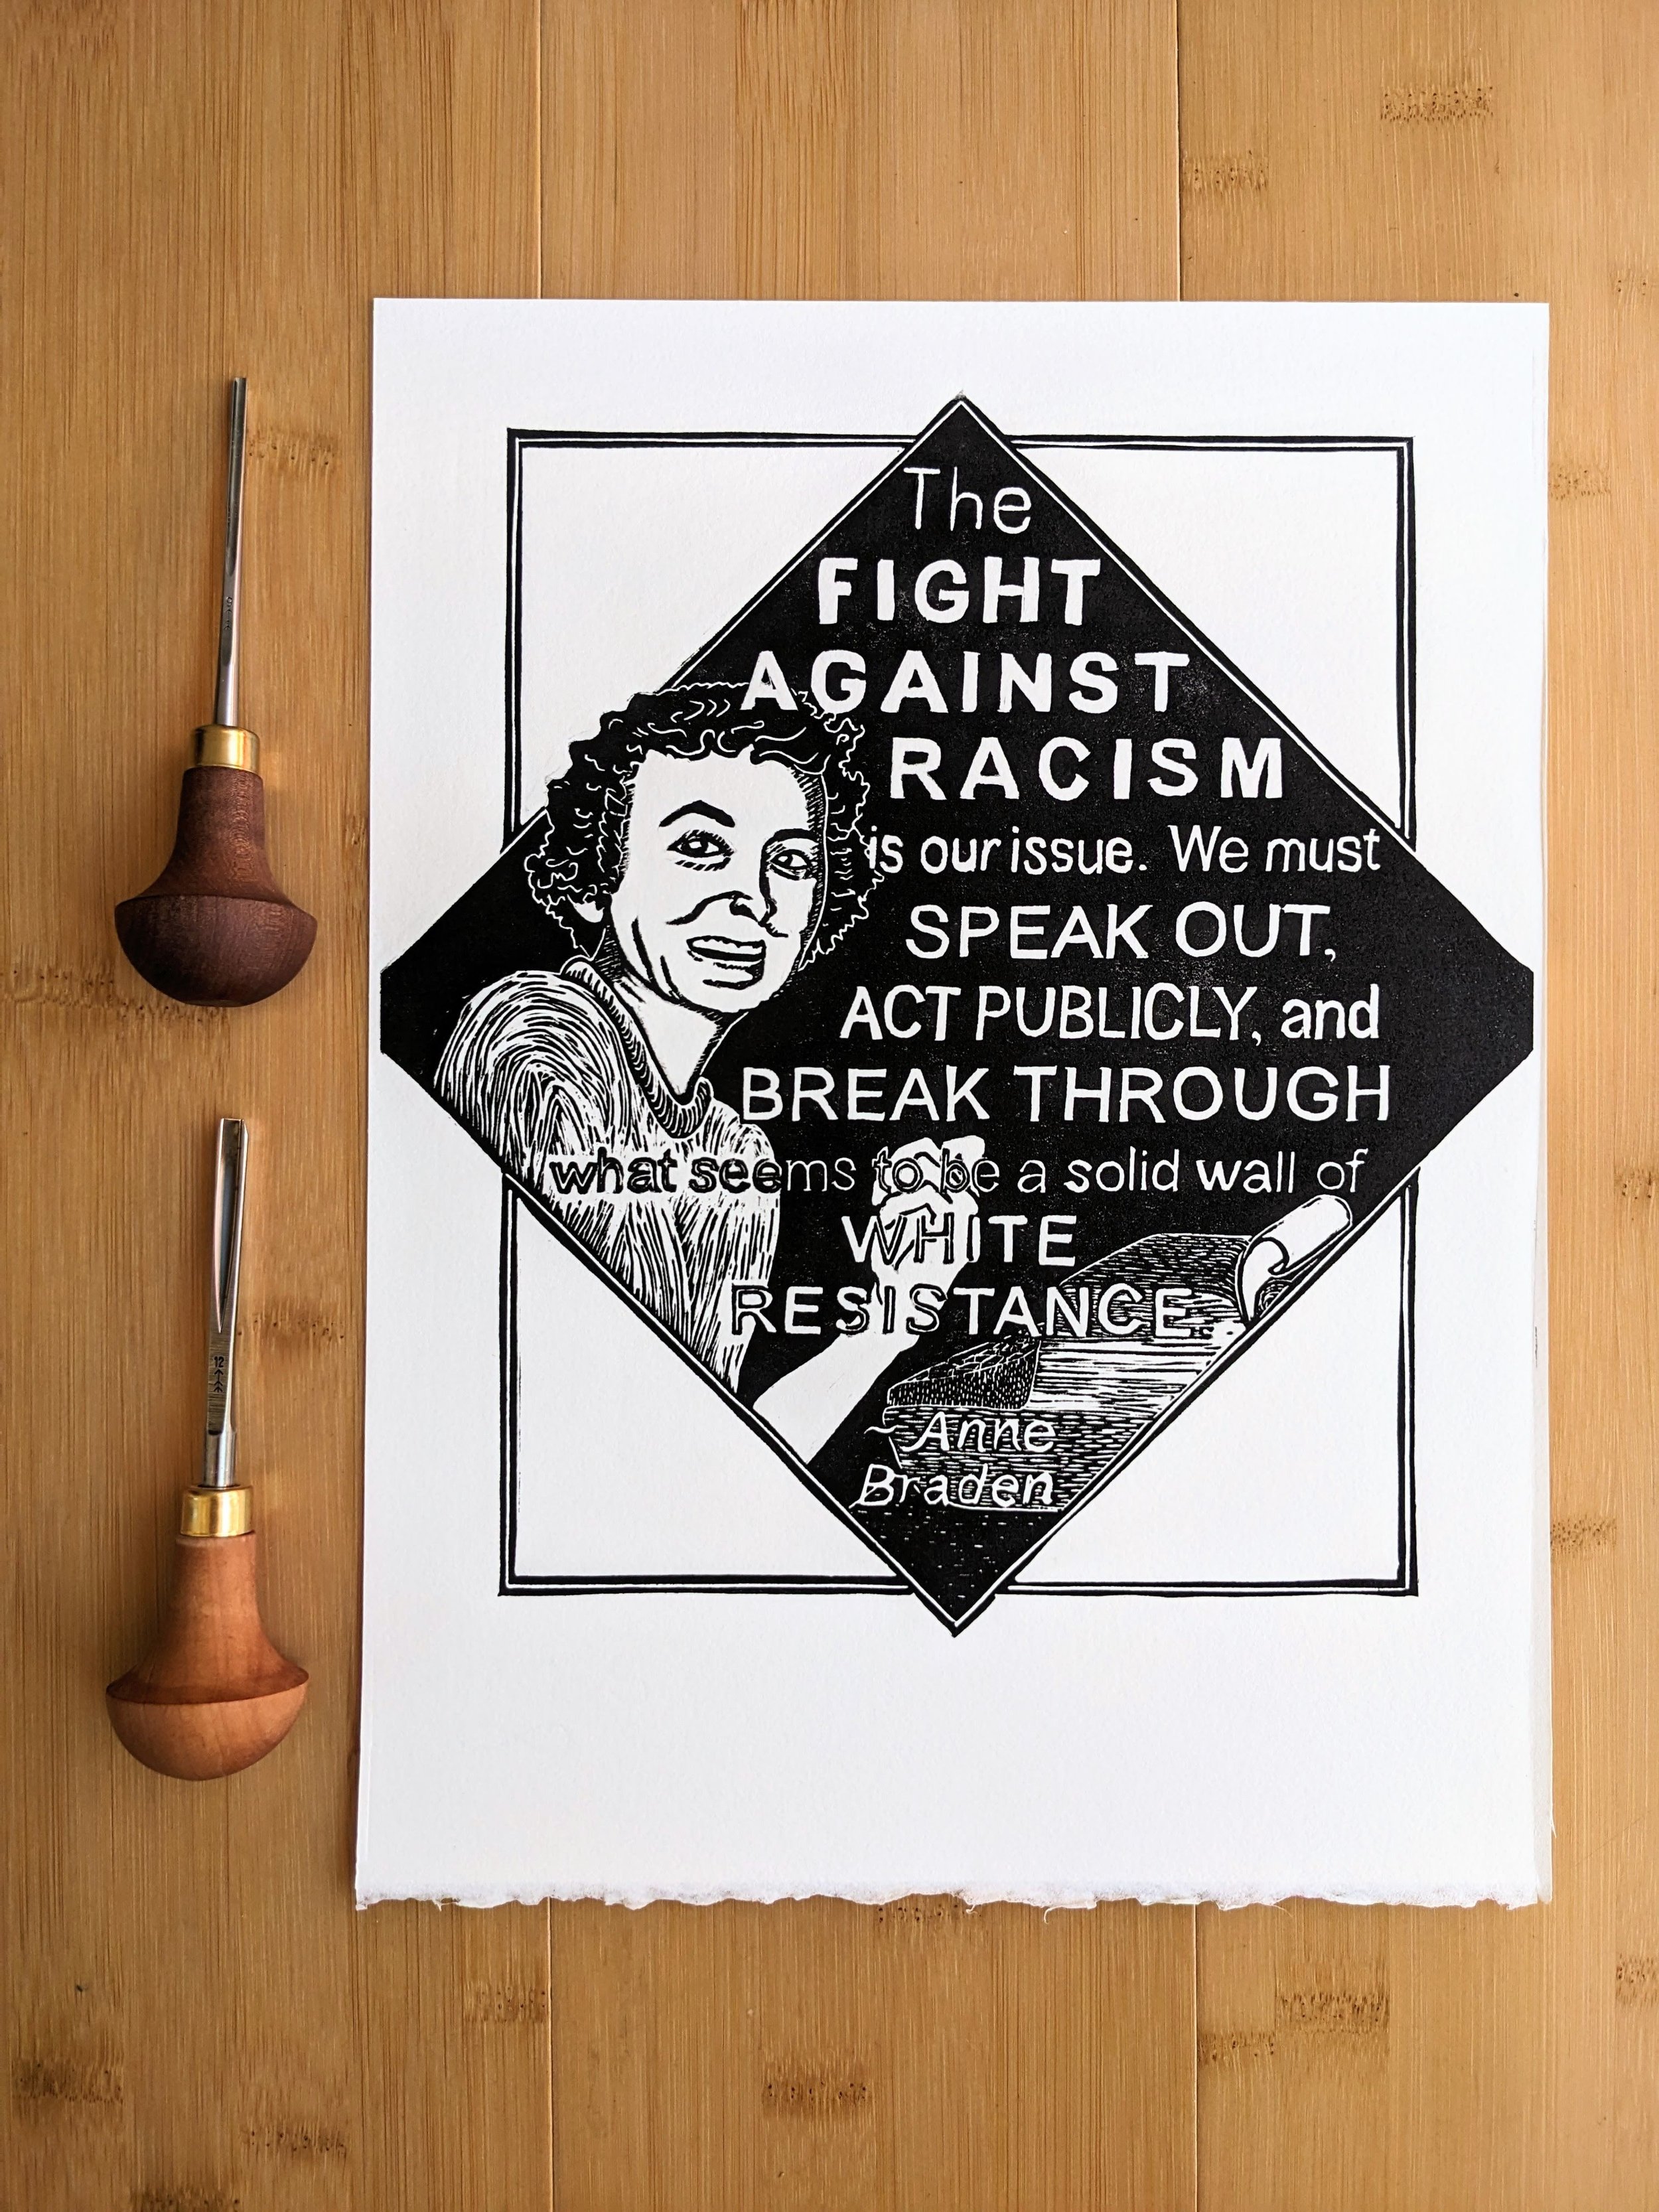 The
FIGHT
AGAINST
RACISM
is our issue. We must
SPEAK OUT,
ACT PUBLICLY, and
BREAK THROUGH
what seems to be a solid wall of
WHITE
RESISTANCE.
~Anne
Braden
12